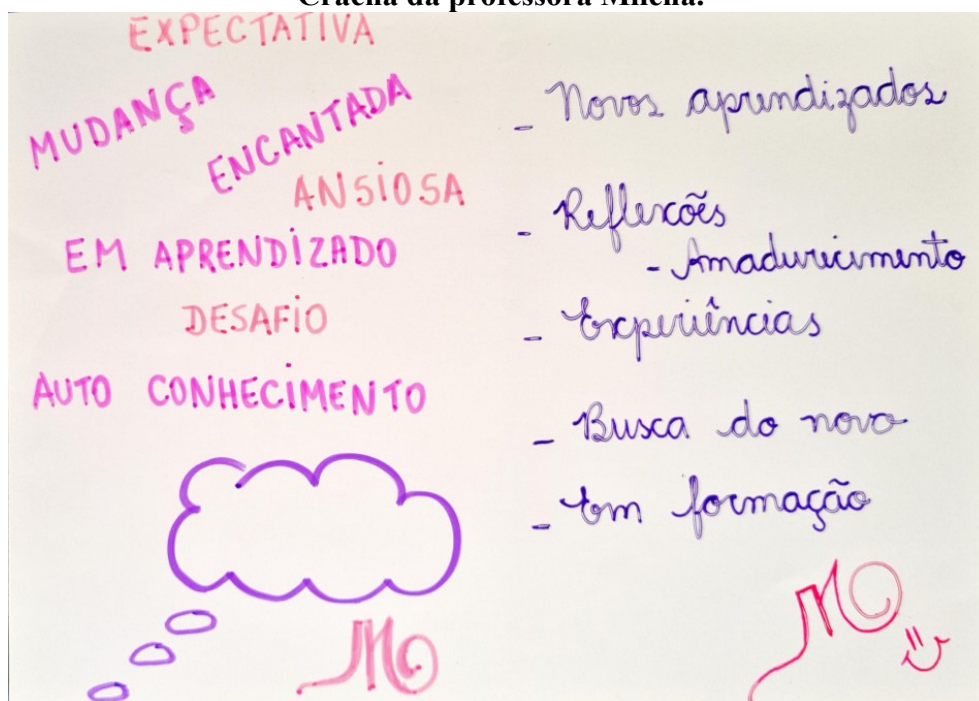 Crachá da professora Milena.
EXPECTATIVA
MUDANÇA
ENCANTADA
ANSIOSA
EM APRENDIZADO
DESAFIO
AUTO CONHECIMENTO
- Novos aprendizados
- Reflexões
- Amadurecimento
- Experiências
- Busca do novo
- Em formação